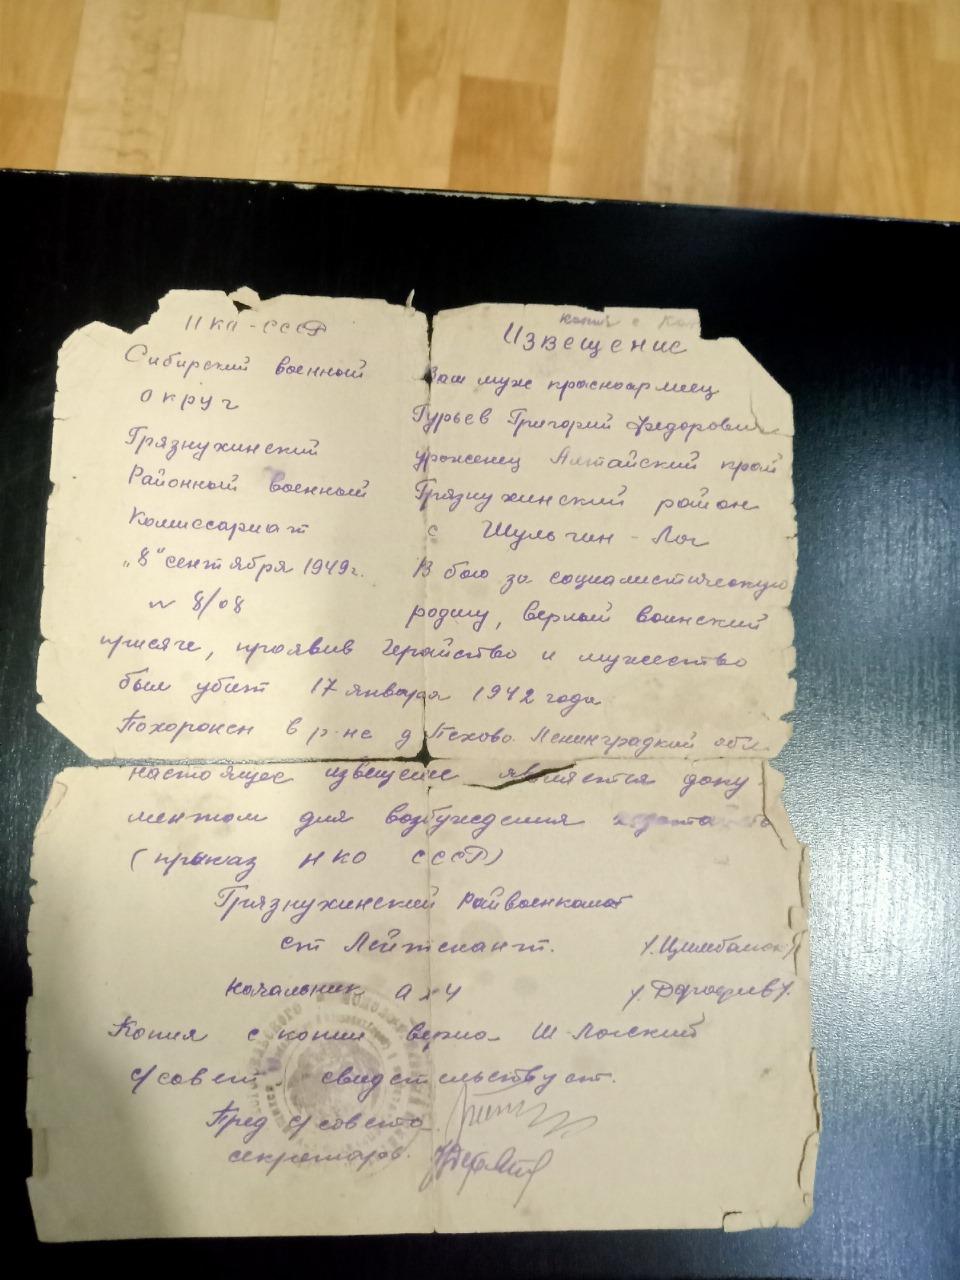 копия с коп
НКО-СССР
Сибирский военный
округ
Грязнухинский
Районный военный
Комиссариат
"8" сентября 1949г.
№ 8/08
Извещение
Ваш муж красноармеец
Гурьев Григорий Федорович
уроженец Алтайский край
Грязнухинский район
с Шульгин-Лог
В бою за социалистическую
родину, верный воинский
присяге, проявив геройство и мужество
был убит 17 января 1942 года
Похоронен в р-не д Пехово Ленинградкий обл.
настоящее извещение является доку
ментом для возбуждения
(приказ НКО СССР)
Грязнухинский Райвоенкомат
ст Лейтенант.
начальник
Копия с копии верна Ш-Логский
с/совет свидетельствует.
Пред с/совета
секретарь.